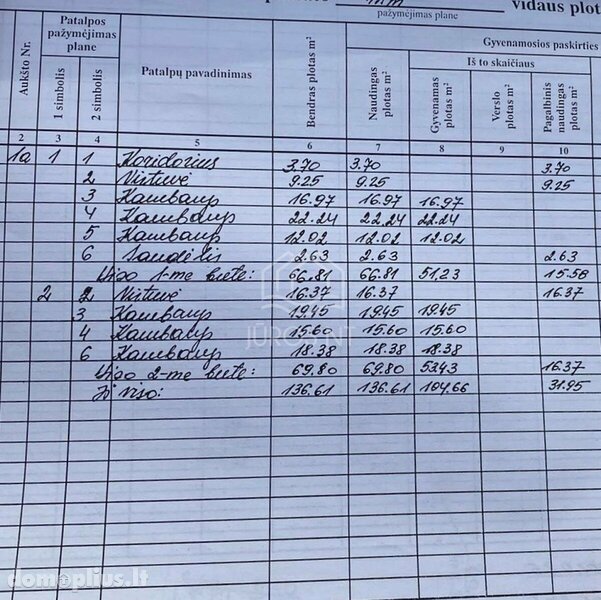 vidaus plot
pažymėjimas plane
Aukšto Nr.
Patalpos pažymėjimas plane
1 simbolis
2 simbolis
Patalpų pavadinimas
Bendras plotas m²
Gyvenamosios paskirties
Naudingas plotas m²
Iš to skaičiaus
Gyvenamas plotas m²
Verslo plotas m²
Pagalbinis naudingas plotas m²
2 3 4 5 6 7 8 9 10
1a 1 1 Koridorius 3.70 3.70 3.70
2 Virtuvė 9.25 9.25 9.25
3 Kambarys 16.97 16.97 16.97
4 Kambarys 22.24 22.24 22.24
5 Kambarys 12.02 12.02 12.02
6 Sandėlis 2.63 2.63 2.63
Viso 1-me bute: 66.81 66.81 51,23 15.58
2 2 Virtuvė 16.37 16.37 16.37
3 Kambarys 19.45 19.45 19.45
4 Kambarys 15.60 15.60 15.60
6 Kambarys 18.38 18.38 18.38
Viso 2-me bute: 69.80 69.80 53.43 16.37
Iš viso: 136.61 136.61 104.66 31.95
domoplius.lt